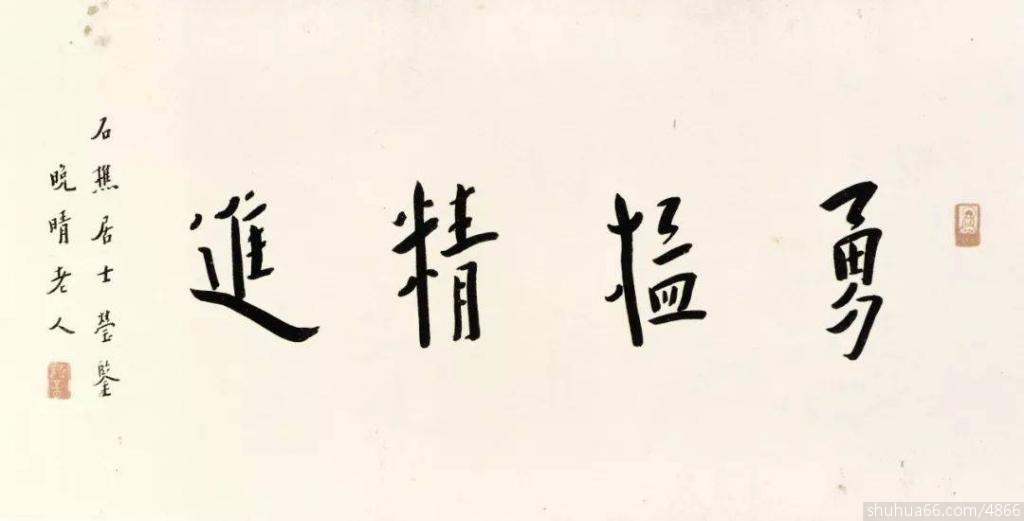 勇猛精進
石樵居士瑩鑒
晚晴老人
shuhua66.com/4866